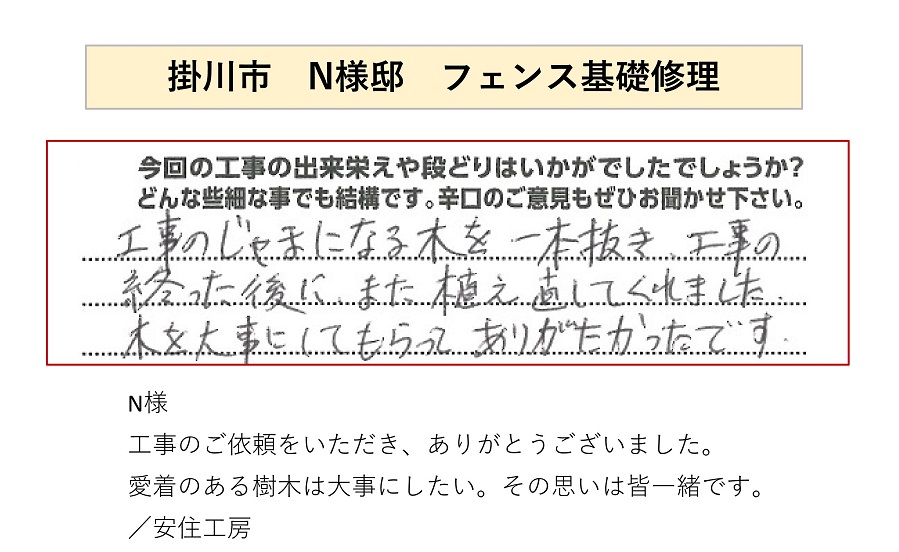 掛川市　N様邸　フェンス基礎修理
今回の工事の出来栄えや段どりはいかがでしたでしょうか?
どんな些細な事でも結構です。辛口のご意見もぜひお聞かせ下さい。
工事のじゃまになる木を一本抜き、工事の
終った後に、また植え直してくれました。
木を大事にしてもらって ありがたかったです。
N様
工事のご依頼をいただき、ありがとうございました。
愛着のある樹木は大事にしたい。その思いは皆一緒です。
／安住工房